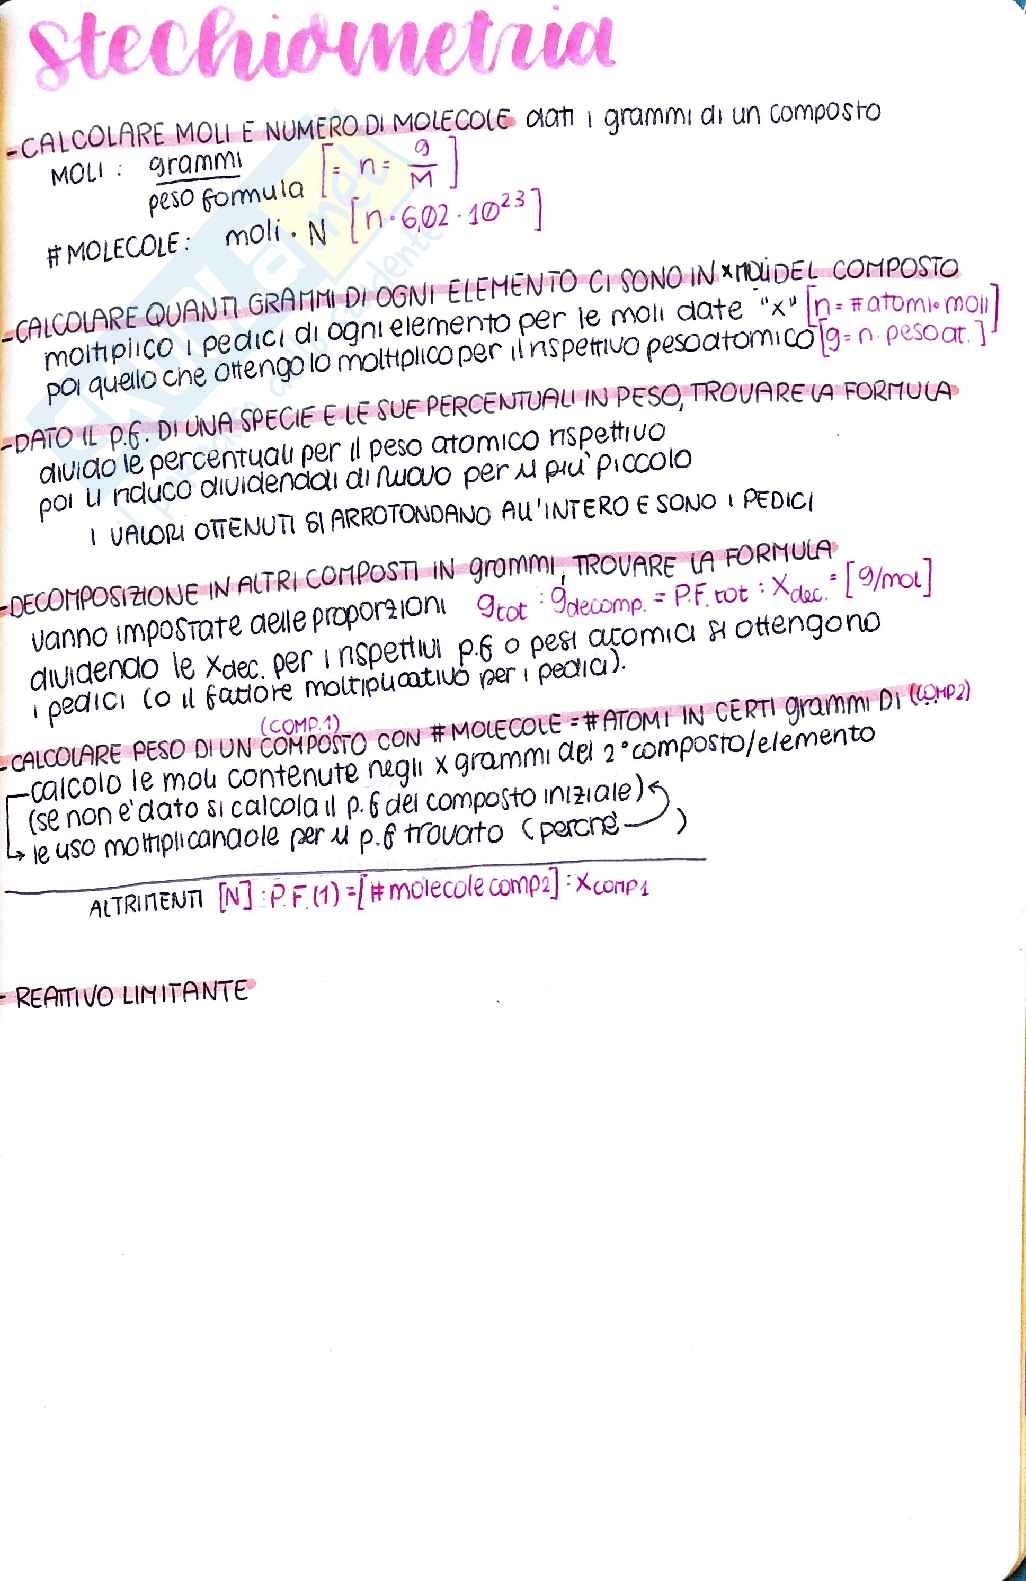 stechiometria
- CALCOLARE MOLI E NUMERO DI MOLECOLE dati i grammi di un composto
MOLI: grammi / peso formula [= n = g/M]
#MOLECOLE: moli · N [n · 6,02 · 10²³]
- CALCOLARE QUANTI GRAMMI DI OGNI ELEMENTO CI SONO IN x MOLI DEL COMPOSTO
moltiplico i pedici di ogni elemento per le moli date "x" [n = #atomi · moli]
poi quello che ottengo lo moltiplico per il rispettivo peso atomico [g = n · peso at.]
- DATO IL p.f. DI UNA SPECIE E LE SUE PERCENTUALI IN PESO, TROVARE LA FORMULA
divido le percentuali per il peso atomico rispettivo
poi li riduco dividendoli di nuovo per il più piccolo
I VALORI OTTENUTI SI ARROTONDANO ALL'INTERO E SONO I PEDICI
- DECOMPOSIZIONE IN ALTRI COMPOSTI IN grammi, TROVARE LA FORMULA
vanno impostate delle proporzioni g tot : g decomp. = P.F. tot : X dec. = [g/mol]
dividendo le x dec. per i rispettivi p.f o pesi atomici si ottengono
i pedici (o il fattore moltiplicativo per i pedici).
(COMP.1)
- CALCOLARE PESO DI UN COMPOSTO CON #MOLECOLE = #ATOMI IN CERTI grammi DI (COMP2)
calcolo le moli contenute negli x grammi del 2° composto/elemento
(se non è dato si calcola il p.f del composto iniziale)
→ le uso moltiplicandole per il p.f trovato (perchè )
ALTRIMENTI [N] : P.F.(1) = [#molecole comp2] : X COMP1
- REATTIVO LIMITANTE